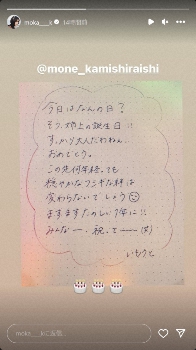 moka___k 14時間前
@mone_kamishiraishi
今日はなんの日?
そう、姉上の誕生日に
すっかり大人だわねん。
おめでとう。
この先何年経っても
穏やかなフシギな姉は
変わらないでしょう
ますますたのしい1年に!!
みんなー、祝ってーー
いもうと
moka___kに返信...